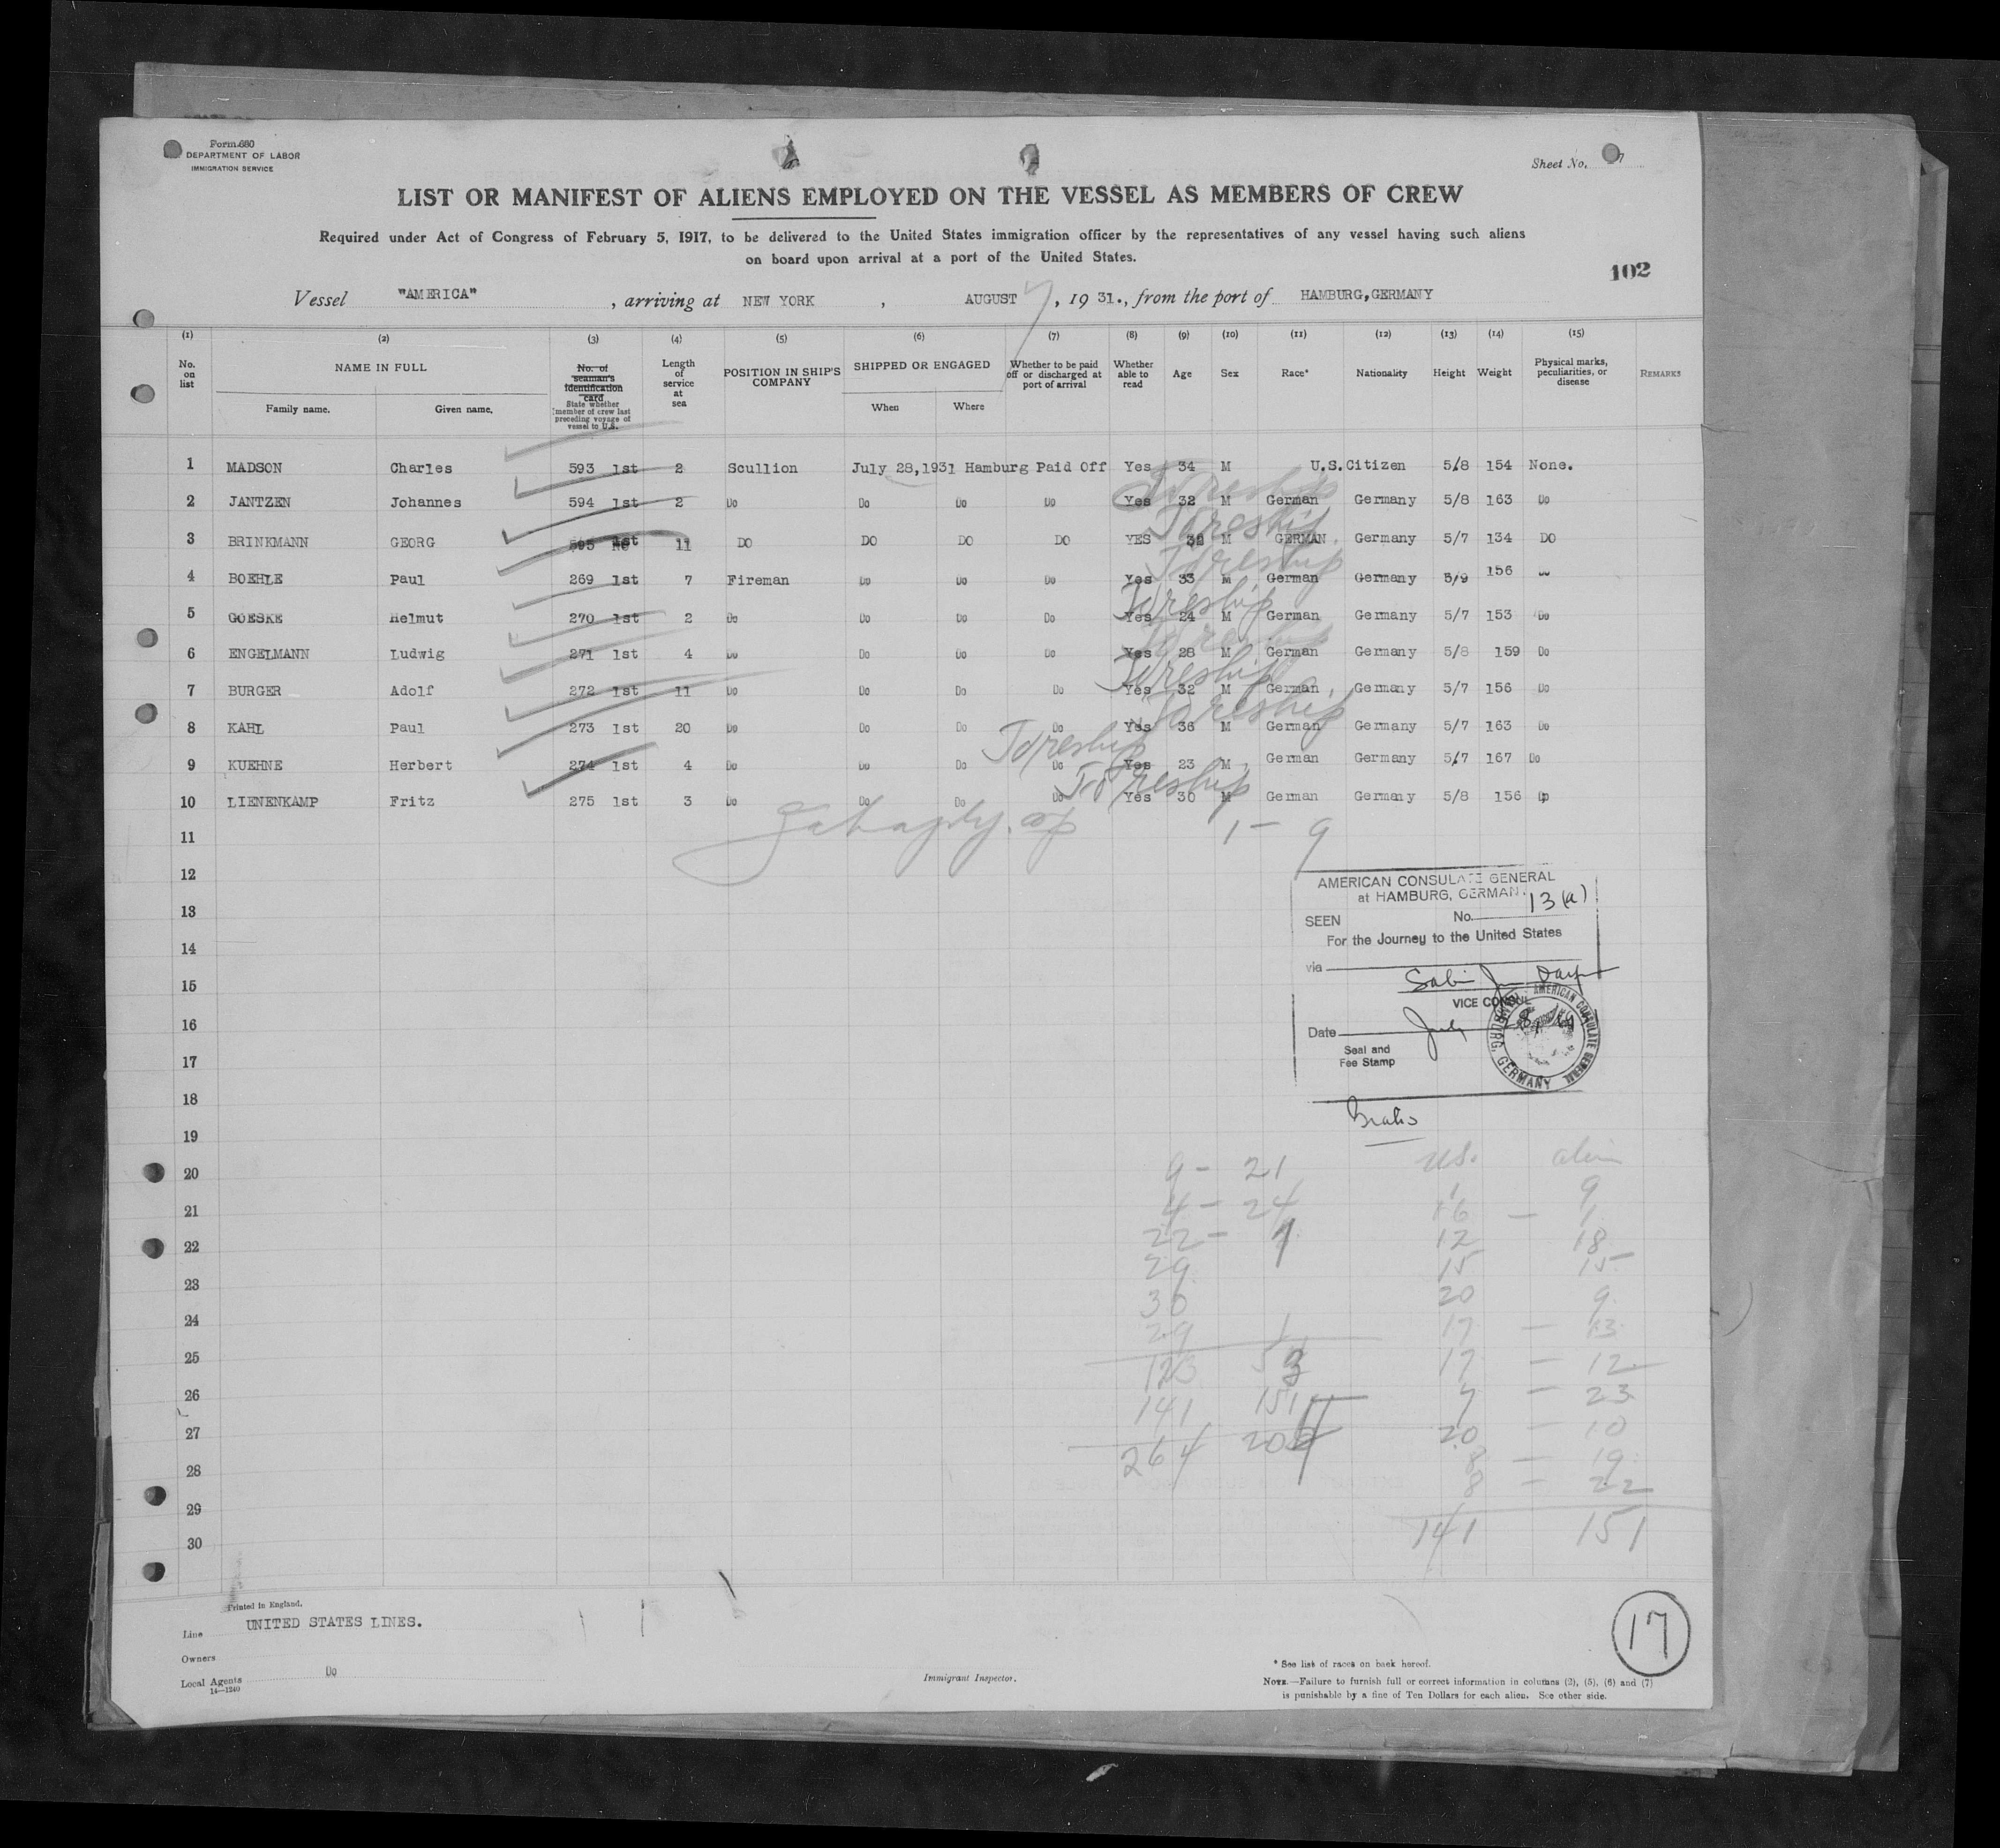 Form 680
DEPARTMENT OF LABOR
IMMIGRATION SERVICE
Sheet No. 7
LIST OR MANIFEST OF ALIENS EMPLOYED ON THE VESSEL AS MEMBERS OF CREW
Required under Act of Congress of February 5, 1917, to be delivered to the United States immigration officer by the representatives of any vessel having such aliens
on board upon arrival at a port of the United States.
102
Vessel "AMERICA", arriving at NEW YORK, AUGUST 7, 1931., from the port of HAMBURG,GERMANY
(1) (2) (3) (4) (5) (6) (7) (8) (9) (10) (11) (12) (13) (14) (15)
No. on list
NAME IN FULL
Family name. Given name.
No. of seaman's identification card
State whether member of crew last preceding voyage of vessel to U.S.
Length of service at sea
POSITION IN SHIP'S COMPANY
SHIPPED OR ENGAGED
When Where
Whether to be paid off or discharged at port of arrival
Whether able to read
Age
Sex
Race*
Nationality
Height
Weight
Physical marks, peculiarities, or disease
REMARKS
1 MADSON Charles 593 1st 2 Scullion July 28,1931 Hamburg Paid Off Yes 34 M U.S.Citizen 5/8 154 None.
2 JANTZEN Johannes 594 1st 2 Do Do Do Do Yes 32 M German Germany 5/8 163 Do
3 BRINKMANN GEORG 595 1st 11 DO DO DO DO YES 32 M GERMAN. Germany 5/7 134 DO
4 BOEHLE Paul 269 1st 7 Fireman Do Do Do Yes 33 M German Germany 5/9 156 Do
5 GOESKE Helmut 270 1st 2 Do Do Do Do Yes 24 M German Germany 5/7 153 Do
6 ENGELMANN Ludwig 271 1st 4 Do Do Do Do Yes 28 M German Germany 5/8 159 Do
7 BURGER Adolf 272 1st 11 Do Do Do Do Yes 32 M German. Germany 5/7 156 Do
8 KAHL Paul 273 1st 20 Do Do Do Do Yes 36 M German Germany 5/7 163 Do
9 KUEHNE Herbert 274 1st 4 Do Do Do Do Yes 23 M German Germany 5/7 167 Do
10 LIENENKAMP Fritz 275 1st 3 Do Do Do Do Yes 30 M German Germany 5/8 156 Do
To reship
To reship
To reship
To reship
To reship
To reship
To reship
To reship
To reship
1 - 9
11
12
13
14
15
16
17
18
19
20
21
22
23
24
25
26
27
28
29
30
AMERICAN CONSULATE GENERAL
at HAMBURG, GERMANY
SEEN No. 13(a)
For the Journey to the United States
via
VICE CONSUL
Date July
Seal and
Fee Stamp
AMERICAN CONSULATE GENERAL HAMBURG, GERMANY
9 - 21
4 - 24
22 - 7
29
30
29 1
123 53
141 151
264 204
US. alien
1 9
16 - 1
12 18
15 15
20 9
17 - 13
17 - 12
7 - 23
20 - 10
8 - 19
8 - 22
141 151
Printed in England.
Line UNITED STATES LINES.
Owners
Local Agents Do
14—1240
Immigrant Inspector.
17
* See list of races on back hereof.
NOTE.—Failure to furnish full or correct information in columns (2), (5), (6) and (7)
is punishable by a fine of Ten Dollars for each alien. See other side.